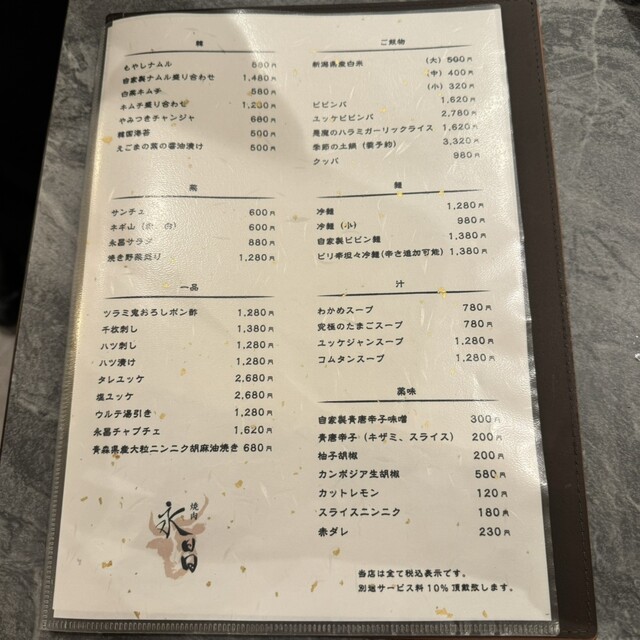 韓
もやしナムル 580円
自家製ナムル盛り合わせ 1,480円
白菜キムチ 580円
キムチ盛り合わせ 1,230円
やみつきチャンジャ 680円
韓国海苔 500円
えごまの葉の醤油漬け 500円
菜
サンチェ 600円
ネギ山（赤 白） 600円
永昌サラダ 880円
焼き野菜炙り 1,280円
一品
ツラミ鬼おろしポン酢 1,280円
千枚刺し 1,380円
ハツ刺し 1,280円
ハツ漬け 1,280円
タレユッケ 2,680円
塩ユッケ 2,680円
ウルテ湯引き 1,280円
永昌チャプチェ 1,620円
青森県産大粒ニンニク胡麻油焼き 680円
焼肉
永昌
ご飯物
新潟県産白米 （大）500円
（中）400円
（小）320円
ビビンバ 1,620円
ユッケビビンバ 2,780円
悪魔のハラミガーリックライス 1,620円
季節の土鍋（要予約） 3,320円
クッパ 980円
麺
冷麺 1,280円
冷麺（小） 980円
自家製ビビン麺 1,380円
ピリ辛坦々冷麺(辛さ追加可能) 1,380円
汁
わかめスープ 780円
究極のたまごスープ 780円
ユッケジャンスープ 1,280円
コムタンスープ 1,280円
薬味
自家製青唐辛子味噌 300円
青唐辛子（キザミ、スライス） 200円
柚子胡椒 200円
カンボジア生胡椒 580円
カットレモン 120円
スライスニンニク 180円
赤ダレ 230円
当店は全て税込表示です。
別途サービス料10％頂戴致します。